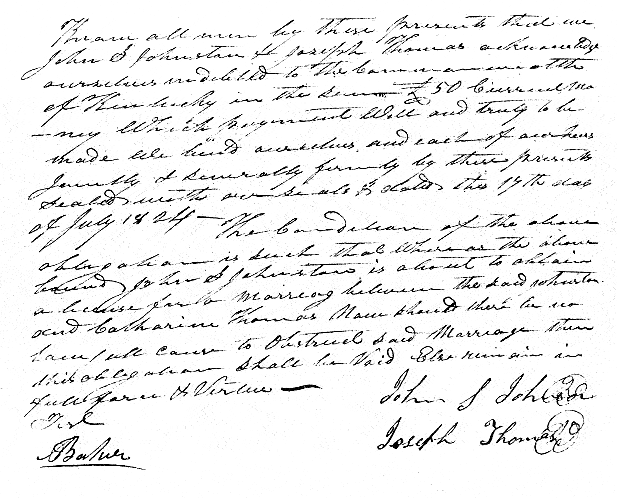 Know all men by these presents that we
John S Johnston & Joseph Thomas acknowledge
ourselves indebted to the Commonwealth
of Kentucky in the sum £50 Current mo
-ney Which payment Well and truly to be
made We bind ourselves and each of our heirs
Jointly & severally firmly by these presents
Sealed with our seals & dated this 17th day
of July 1824 — The Condition of the above
obligation is such that Whereas the above
bound John S Johnston is about to obtain
a license for a Marriag between the said Johnston
and Catharine Thomas Now should there be no
lawfull cause to Obstruct said Marriage then
this obligation shall be Void Else remain in
full force & Virtue —
John S Johnston
Test
Joseph Thomas